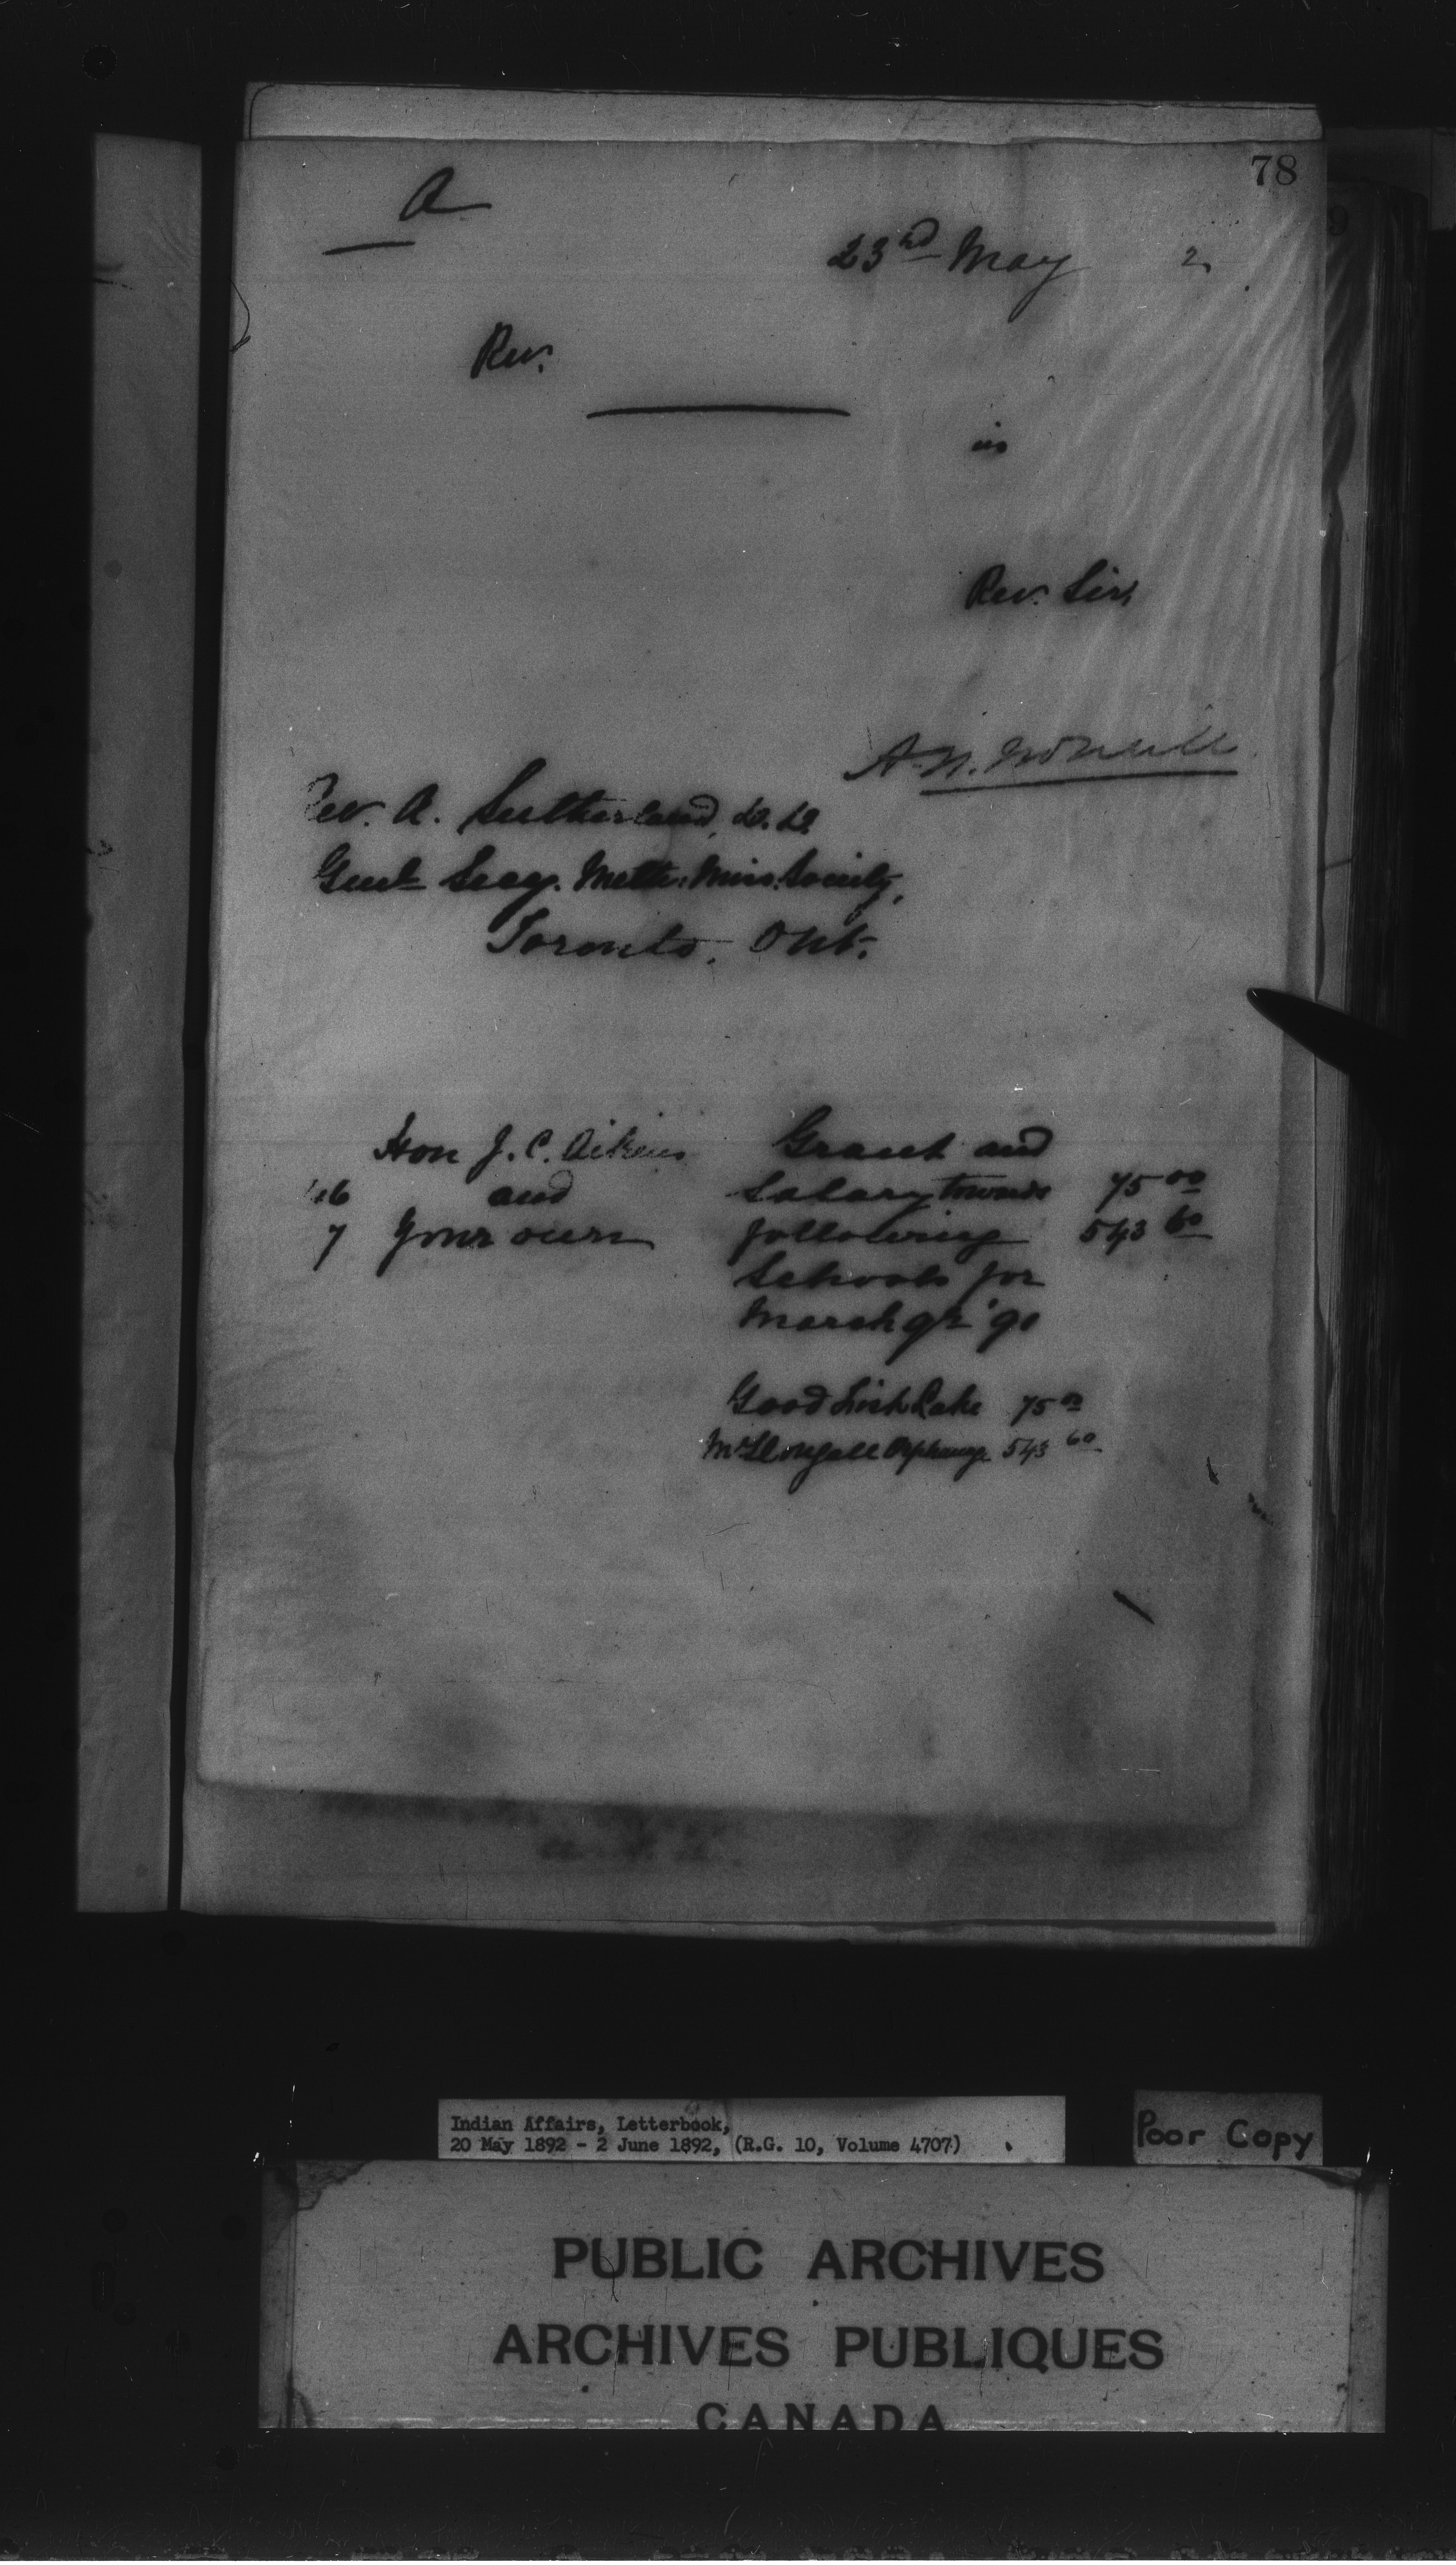 78
A
23rd May 2
Rev.
in
Rev. Sir,
Rev. A. Sutherland, D.D.
Genl. Secy. Meth: Miss. Society,
Toronto. Ont.
Hon J. C. Aikens Grant and
and Salary towards 75 00
7 Your own following 543 60
Schools for
March qr '90
Good Fish Lake 75 00
McDougall Orphange 543 60
Indian Affairs, Letterbook,
20 May 1892 - 2 June 1892, (R.G. 10, Volume 4707)
Poor Copy
PUBLIC ARCHIVES
ARCHIVES PUBLIQUES
CANADA